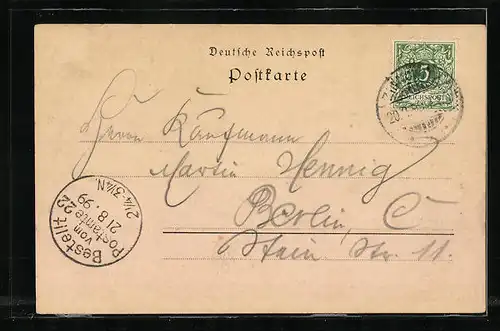 Deutsche Reichspost
Postkarte
5
REICHSPOST
Herrn Kaufmann
Martin Hennig
Berlin, C
Stein Str. 11.
Bestellt
vom
Postamte 22
21 8. 99
2¼-3¼N.